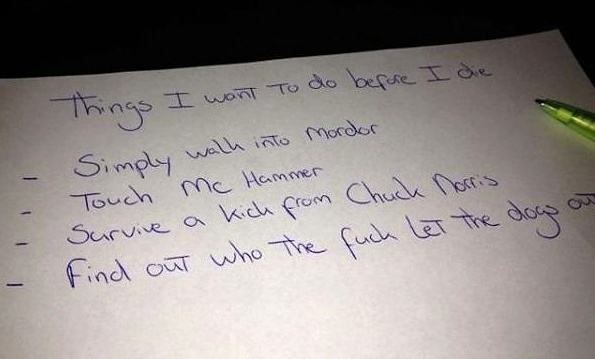 Things I want To do before I die
- Simply walk into Mordor
- Touch Mc Hammer
- Survive a kick from Chuck Norris
- Find out who the fuck let the dogs out